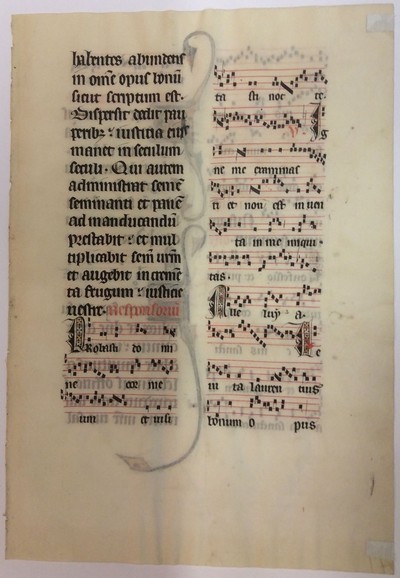 habentes abundetis
in om̄e opus bonū
sicut scriptum est.
Dispersit dedit pau
peribȝ : iusticia eius
manet in seculum
seculi. Qui autem
administrat semē
seminanti et panē
ad manducandū
prestabit : et mul
tiplicabit semē urm̄
et augebit in cremē
ta frugum : iusticie
uestre. Responsoriū
Probasti do mi
ne cor me
um et uisi
ta sti noc te.
Ig
ne me examinas
ti et non est in uen
ta in me iniqui
tas.
Alle luya.
Le
ui ta lauren cius
bonum o pus